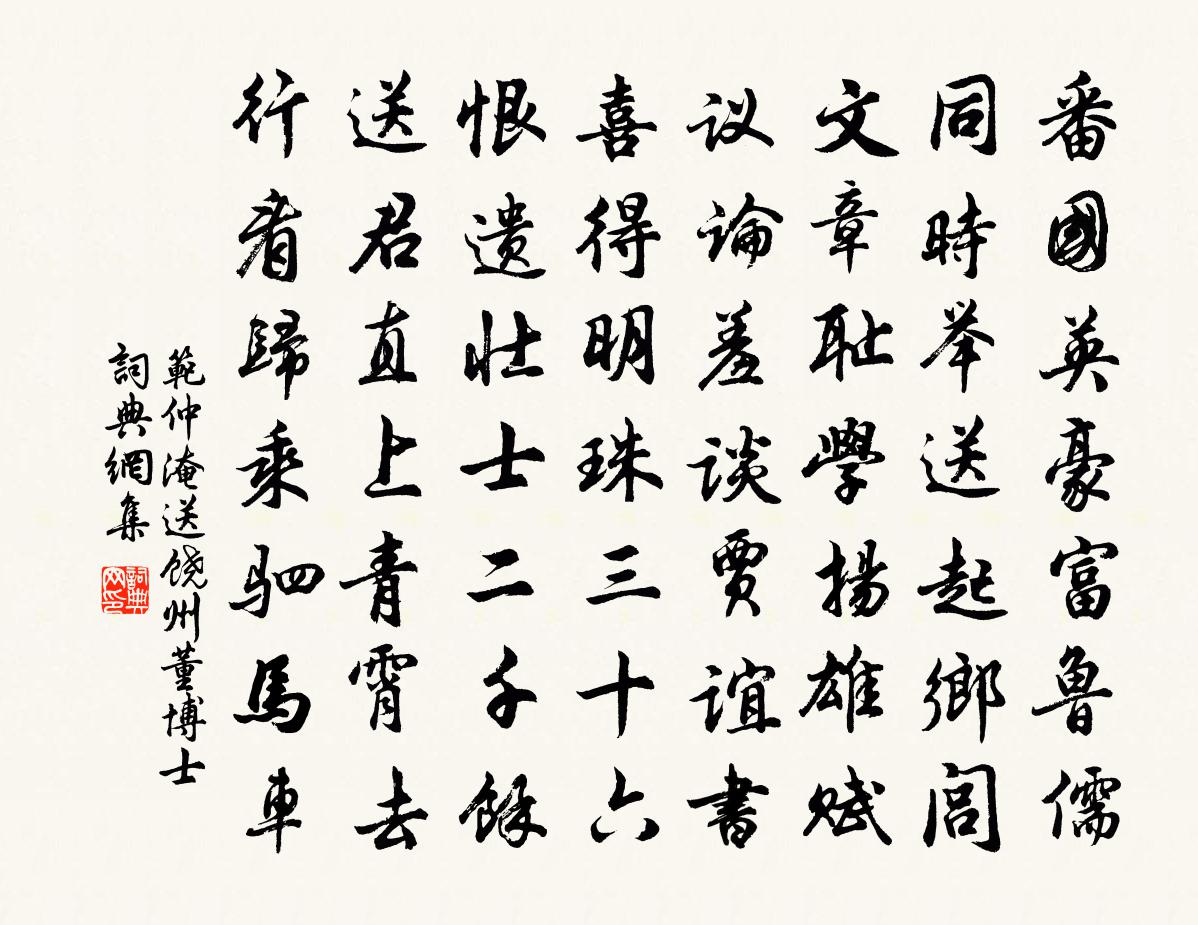 番國英豪富魯儒
同時举送起鄉闾
文章耻學揚雄赋
议論羞谈賈谊書
喜得明珠三十六
恨遗壮士二千餘
送君直上青霄去
行看歸乘驷馬車
範仲淹送饒州董博士
詞典網集
詞典网印